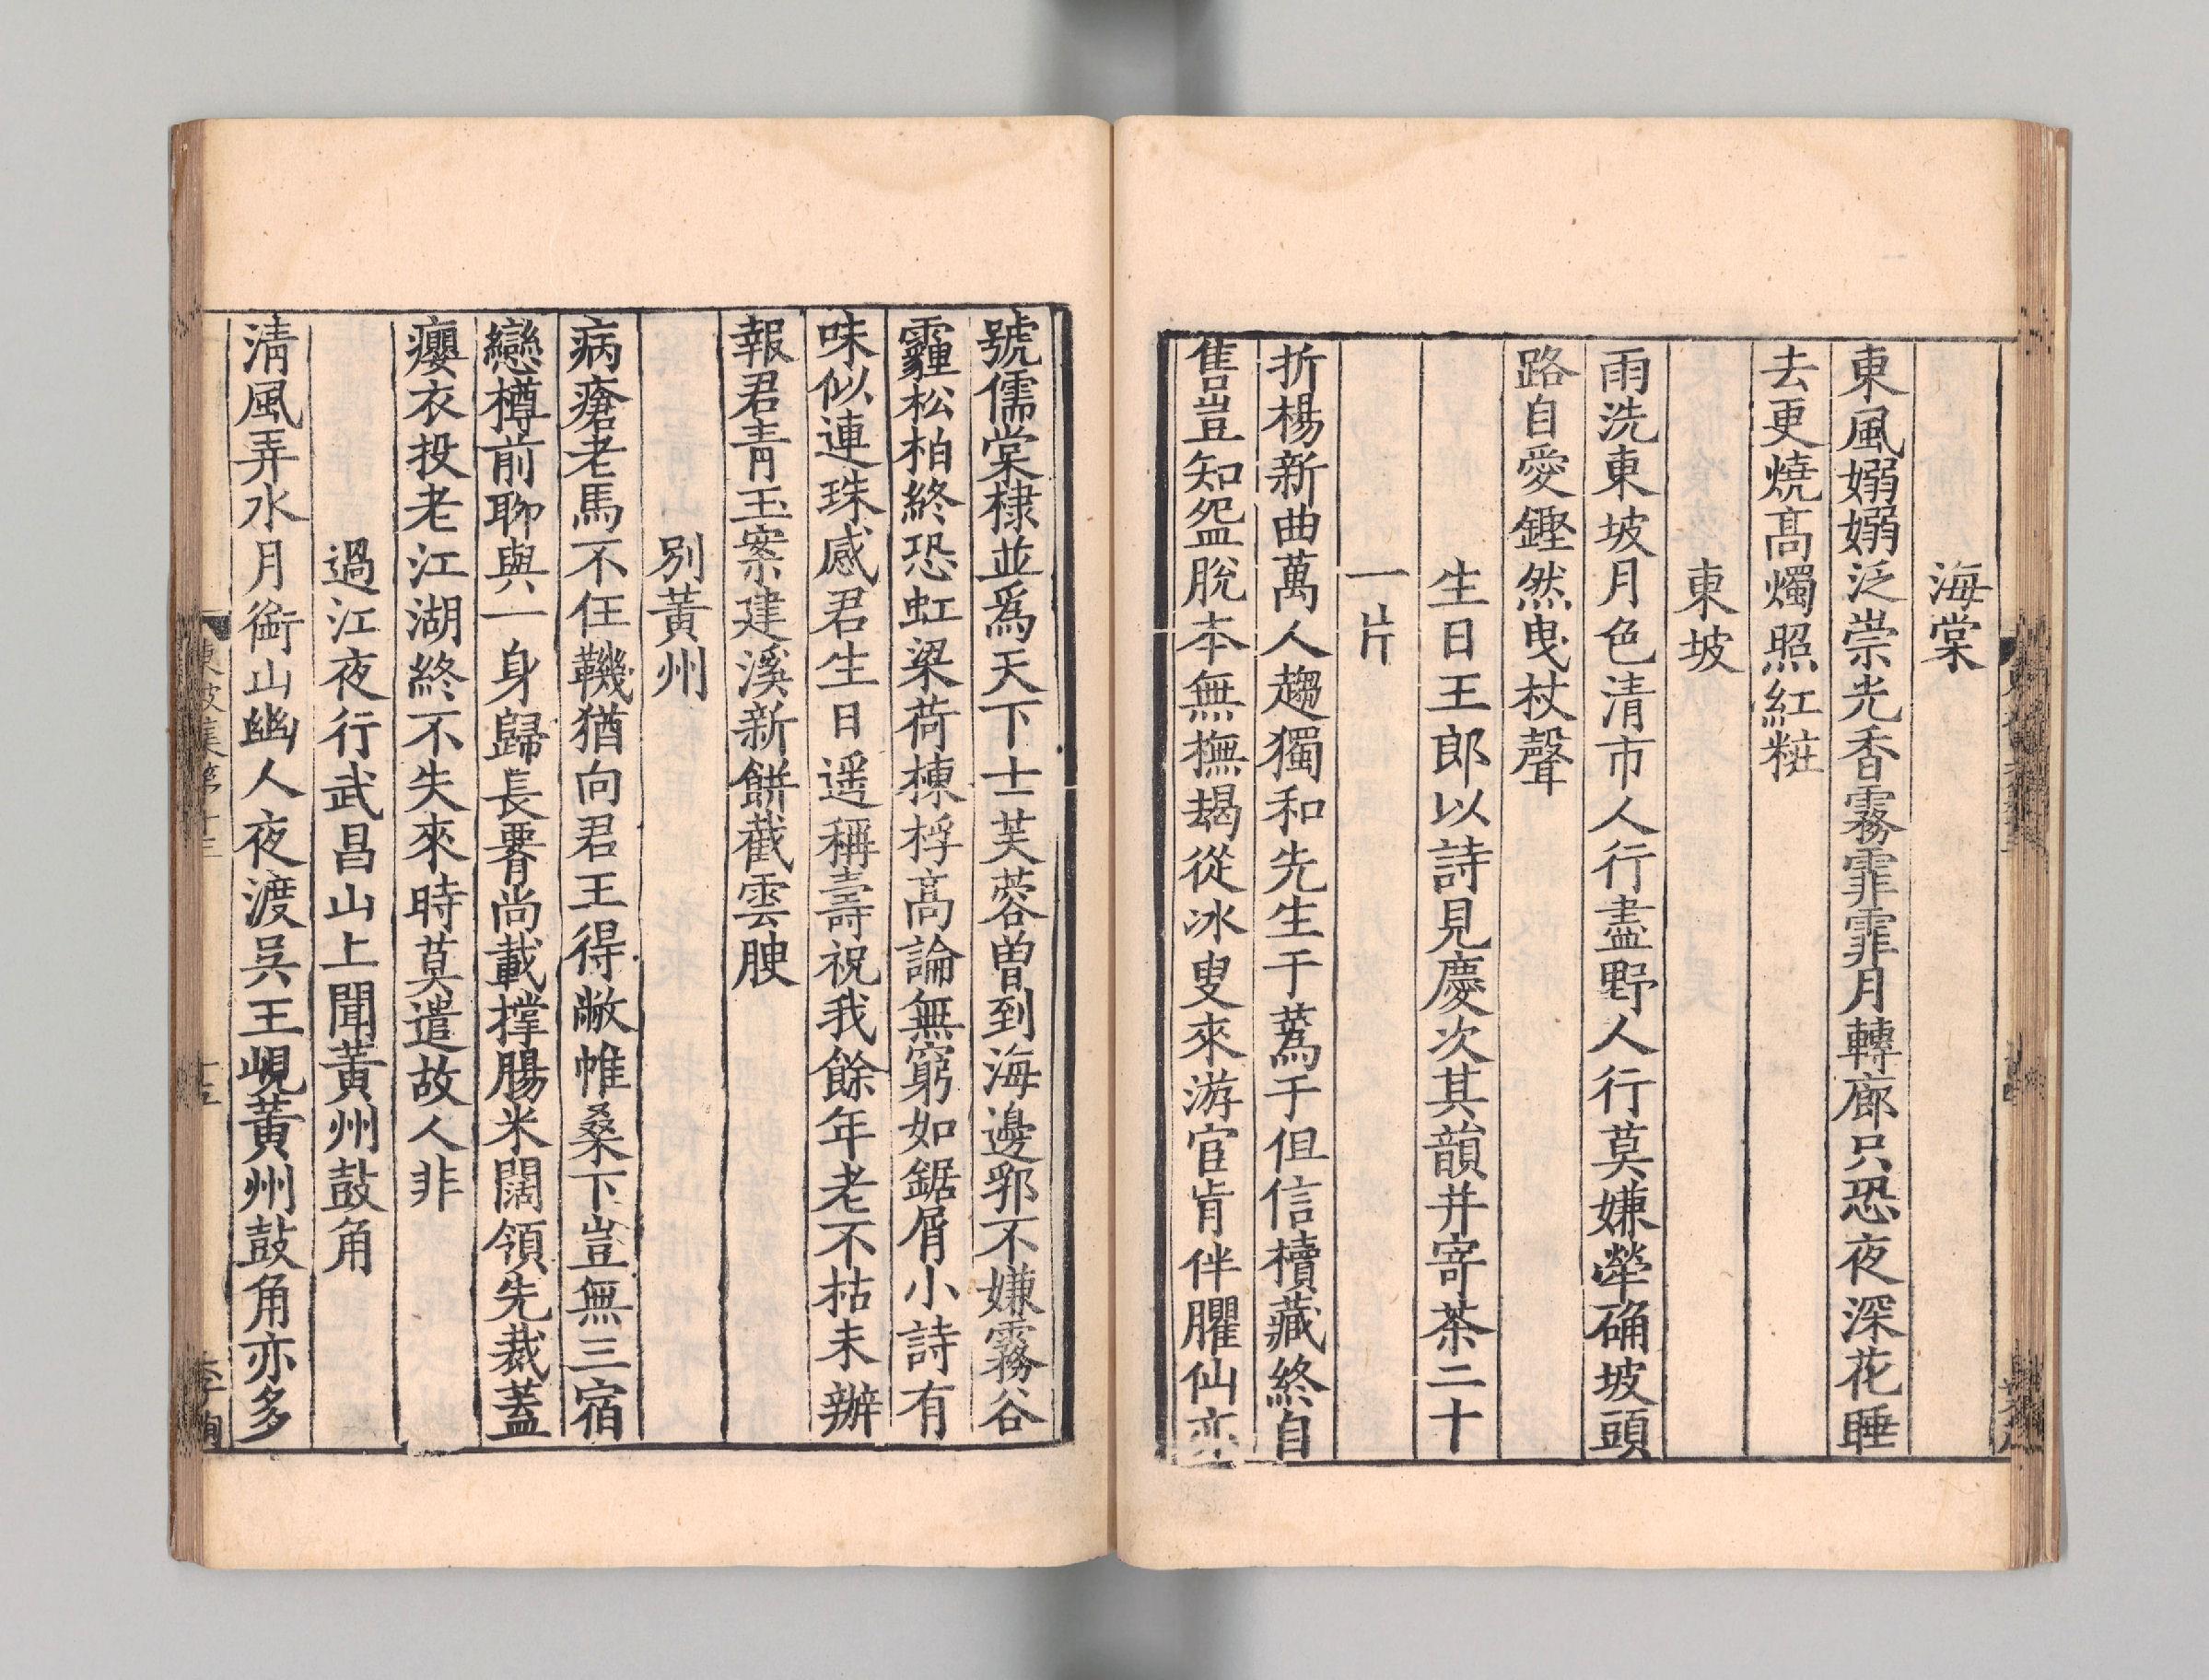 海棠
東風嫋嫋泛崇光香霧霏霏月轉廊只恐夜深花睡
去更燒髙燭照紅粧
東坡
雨洗東坡月色清市人行盡野人行莫嫌犖确坡頭
路自愛鏗然曳杖聲
生日王郎以詩見慶次其韻并寄茶二十
一片
折楊新曲萬人趨獨和先生于蔿于但信櫝藏終自
售豈知盌脫本無撫朅從冰叟來游宦肯伴臞仙亦
號儒棠棣並爲天下士芙蓉曾到海邊郛不嫌霧谷
霾松柏終恐虹梁荷棟桴髙論無窮如鋸屑小詩有
味似連珠感君生日遥稱壽祝我餘年老不枯未辦
報君青玉案建溪新餅截雲腴
別黃州
病瘡老馬不任鞿猶向君王得敝帷桑下豈無三宿
戀樽前聊與一身歸長䙅尚載撑腸米闊領先裁蓋
癭衣投老江湖終不失來時莫遣故人非
過江夜行武昌山上聞黃州鼓角
清風弄水月銜山幽人夜渡吳王峴黃州鼓角亦多
東坡集第十三
十五